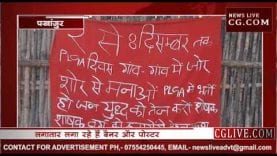 पखांजुर
NEWS LIVE
CG.COM
2 से 8 दिसम्बर तक
PLGA दिवस गांव-गांव में जोर
शोर से मनाओ PLGA में भर्ती
हो जन युद्ध को तेज करो
लगातार लगा रहे हैं बैनर और पोस्टर
CGLIVE.COM
CONTACT FOR ADVERTISEMENT PH,-07554250445, EMAIL- newsliveadvt@gmail.com